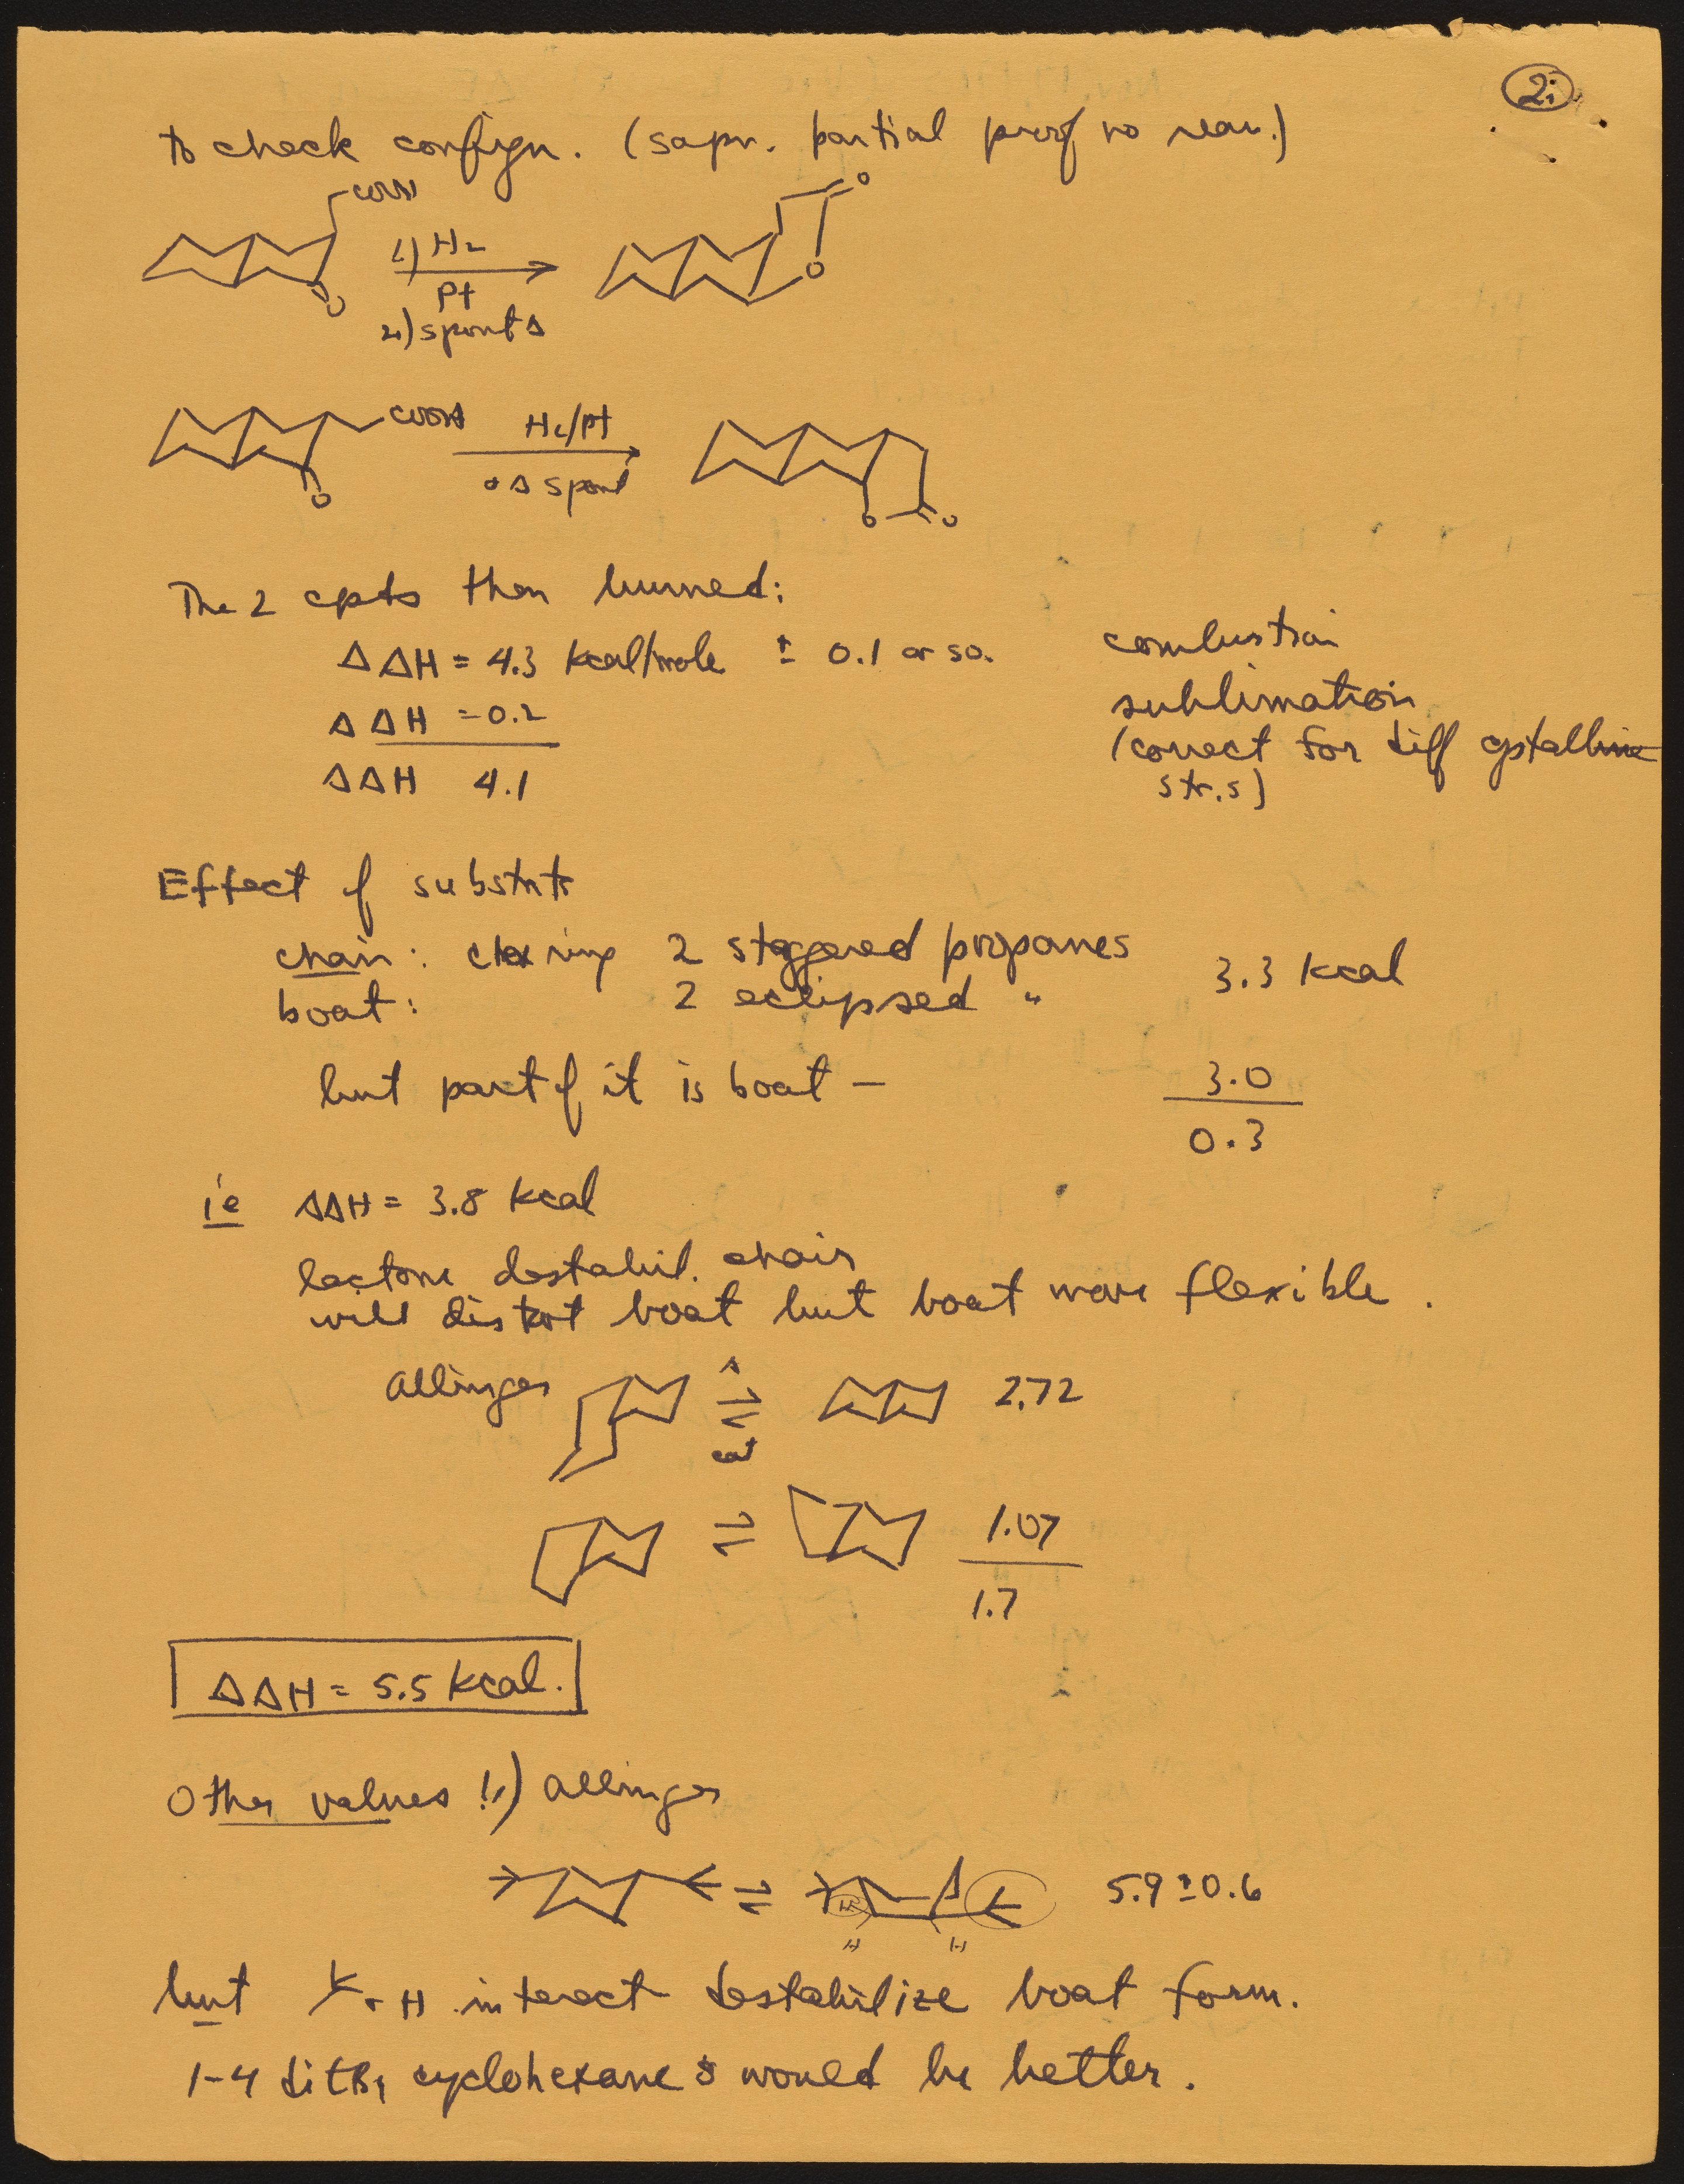 2.
to check confign. (sapn. partial proof no rearr.)
COOH
1.) H₂
Pt
2.) spont Δ
O
O
O
COOH
H₂/Pt
Δ spont
O
O
O
The 2 cpds then burned:
ΔΔH = 4.3 kcal/mole ± 0.1 or so.
combustion
ΔΔH = 0.2
sublimation
(correct for diff crystalline
str.s)
ΔΔH 4.1
Effect of substnts
chair: ring 2 staggered propanes
3.3 kcal
boat: 2 eclipsed "
but part of it is boat — 3.0
0.3
ie ΔΔH = 3.8 kcal
lactone destabil. chair
will distort boat but boat more flexible.
Allinger Δ ⇌ cat 2.72
⇌ 1.07
1.7
ΔΔH = 5.5 kcal.
Other values 1.) Allinger
⇌ H H H 5.9 ± 0.6
but + H interact destabilize boat form.
1-4 ditBu cyclohexanes would be better.